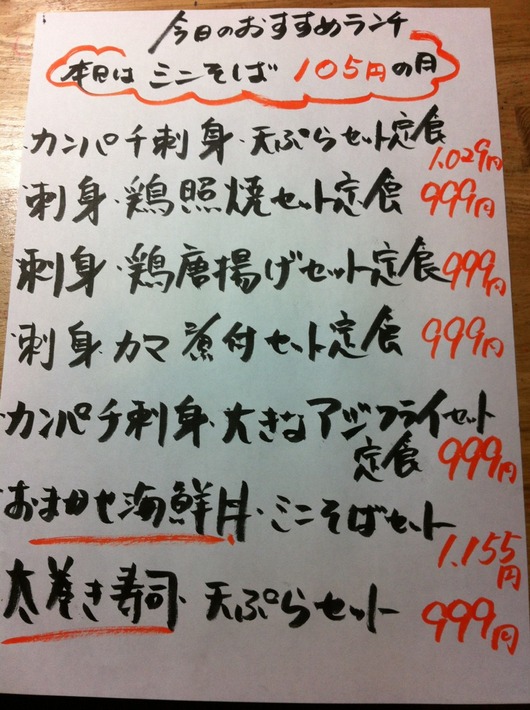 今日のおすすめランチ
本日は ミニそば 105円の日
カンパチ刺身・天ぷらセット定食 1.029円
刺身・鶏照焼セット定食 999円
刺身・鶏唐揚げセット定食 999円
刺身・カマ煮付セット定食 999円
カンパチ刺身・大きなアジフライセット
定食 999円
おまかせ海鮮丼・ミニそばセット
1.155円
太巻き寿司・天ぷらセット 999円